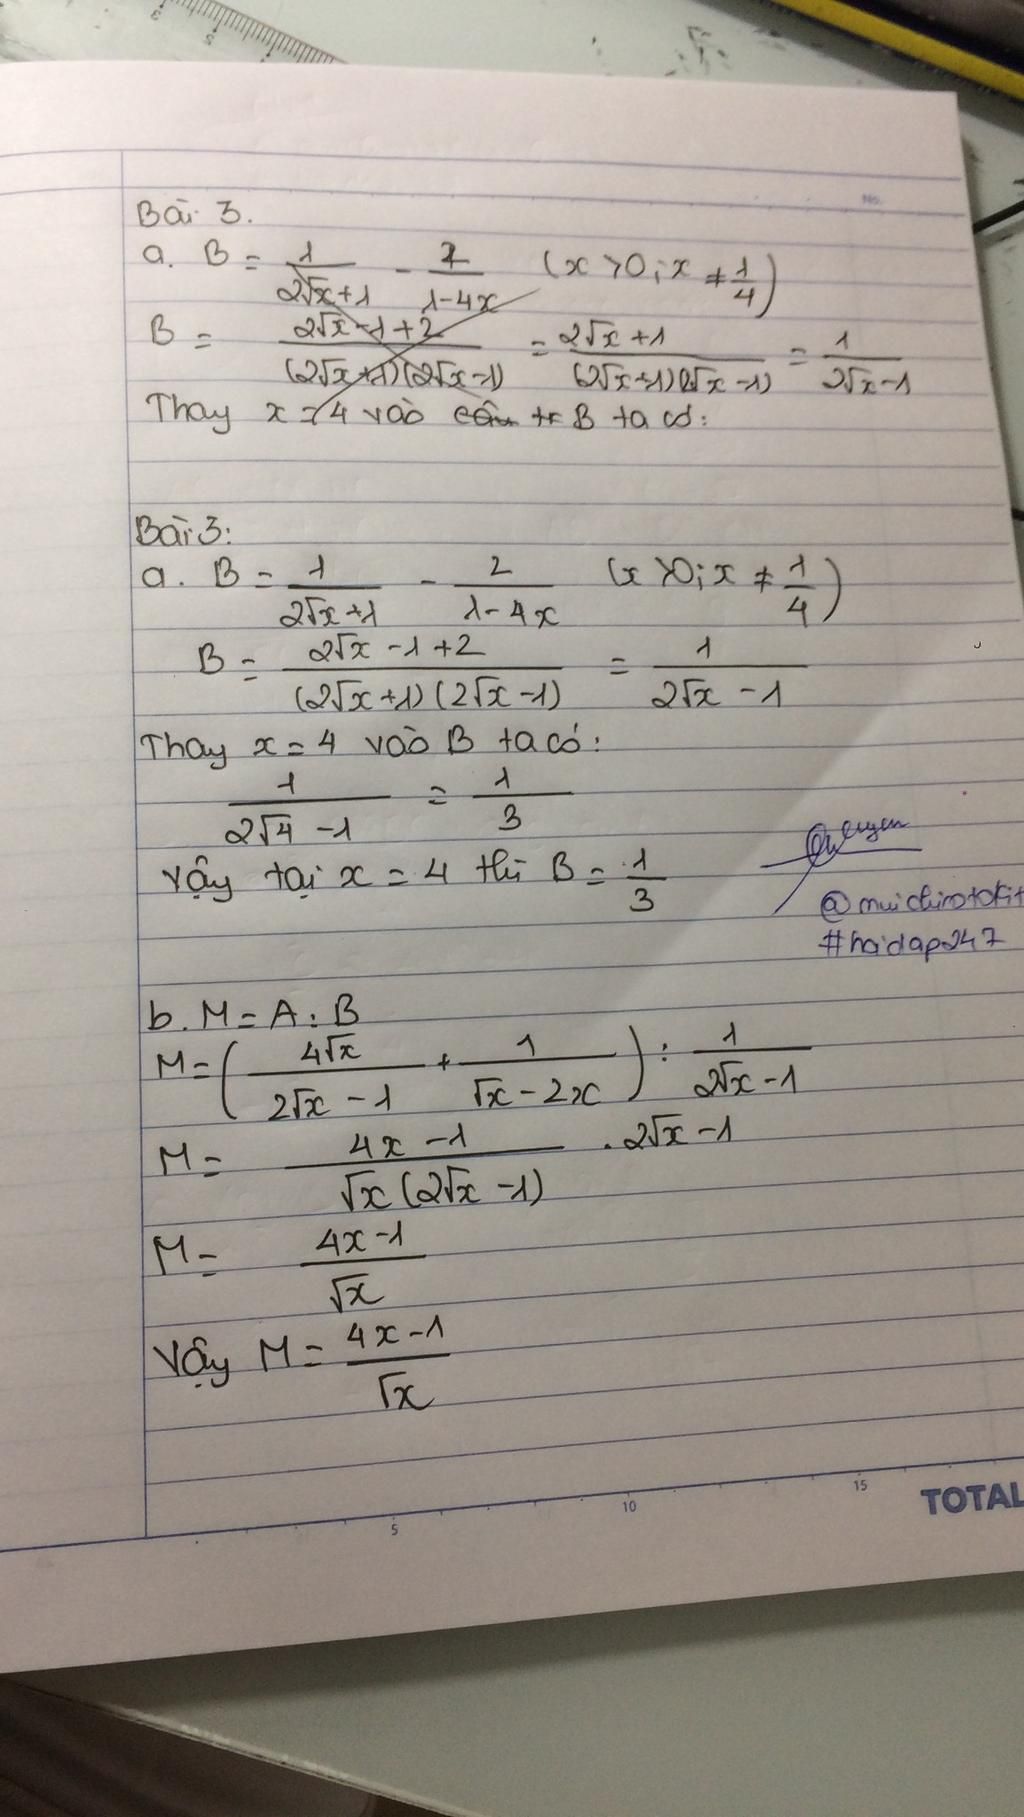 No.
Bài 3.
a. B = 1/(2√x+1) - 2/(1-4x) (x >0; x ≠ 1/4)
B = (2√x -1+2)/((2√x+1)(2√x-1)) = (2√x+1)/((2√x+1)(2√x-1)) = 1/(2√x-1)
Thay x = 4 vào câu tr B ta có:
Bài 3:
a. B = 1/(2√x+1) - 2/(1-4x) (x >0; x ≠ 1/4)
B = (2√x -1+2)/((2√x+1)(2√x-1)) = 1/(2√x -1)
Thay x = 4 vào B ta có:
1/(2√4 -1) = 1/3
Vậy tại x = 4 thì B = 1/3
#hoidap247
b. M = A : B
M = (4√x/(2√x -1) + 1/(√x - 2x)) : 1/(2√x -1)
M = (4x -1)/(√x(2√x -1)) . 2√x -1
M = (4x -1)/√x
Vậy M = (4x -1)/√x
5 10 15 TOTAL